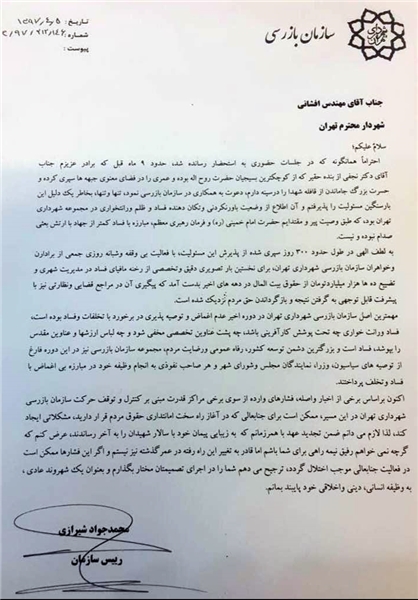 سازمان بازرسی
تاریخ: ۱۳۹۷/۴/۵
شماره:
پیوست:
جناب آقای مهندس افشانی
شهردار محترم تهران
سلامٌ علیکم؛
احتراماً همانگونه که در جلسات حضوری به استحضار رسانده شد، حدود ۹ ماه قبل که برادر عزیزم جناب
آقای دکتر نجفی از بنده حقیر که از کوچکترین بسیجیان حضرت روح اله بوده و عمری را در فضای معنوی جبهه ها سپری کرده و
حسرت بزرگ جاماندن از قافله شهدا را درسینه دارم، دعوت به همکاری در سازمان بازرسی نمود، تنها وتنها، بخاطر یک دلیل این
مسئولیت را پذیرفتم و آن اطلاع از وضعیت باورنکردنی وتکان دهنده فساد و ظلم ورانتخواری در مجموعه شهرداری
تهران بود، که طبق وصیت پیر و مقتدایم حضرت امام خمینی (ره) و فرمان رهبری معظم، مبارزه با فساد کمتر از جهاد با ارتش بعثی
صدام نبوده و نیست.
به لطف الهی در طول حدود ۳۰۰ روز سپری شده از پذیرش این مسئولیت، با فعالیت بی وقفه وشبانه روزی جمعی از برادارن
وخواهران سازمان بازرسی شهرداری تهران، برای نخستین بار تصویری دقیق وتخصصی از رخنه مافیای فساد در مدیریت شهری و
تضییع ده ها هزار میلیاردتومان از حقوق بیت المال در دهه های اخیر بدست آمد که پیگیری آن در مراجع قضایی ونظارتی نیز با
پیشرفت قابل توجهی به گرفتن نتیجه و بازگرداندن حق مردم نزدیک شده است.
مهمترین اصل سازمان بازرسی شهرداری تهران در دوره اخیر عدم اغماض و توصیه پذیری در برخورد با تخلفات وفساد بوده است،
فساد ورانت خواری چه تحت پوشش کارآفرینی باشد، چه پشت عناوین تخصصی مخفی شود و چه لباس ارزشها و عناوین مقدس
را بپوشد، فساد است و بزرگترین دشمن توسعه کشور، رفاه عمومی ورضایت مردم، مجموعه سازمان بازرسی نیز در این دوره فارغ
از توصیه های سیاسیون، وزرا، نمایندگان مجلس وشورای شهر و هر صاحب نفوذی به انجام وظیفه خود در مبارزه بی اغماض با
فساد و تخلف پرداختند.
اکنون براساس برخی از اخبار واصله، فشارهای وارده از سوی برخی مراکز قدرت مبنی بر کنترل و توقف حرکت سازمان بازرسی
شهرداری تهران در این مسیر، ممکن است برای جنابعالی که در آغاز راه سخت امانتداری حقوق مردم قرار دارید، مشکلاتی ایجاد
کند، لذا لازم می دانم ضمن تجدید عهد با همرزمانم که به زیبایی پیمان خود با سالار شهیدان را به آخر رساندند، عرض کنم که
گرچه نمی خواهم رفیق نیمه راهی برای شما باشم اما قادر به تغییر این راه رفته در عمرگذشته نیز نیستم و اگر این فشارها ممکن است
در فعالیت جنابعالی موجب اختلال گردد، ترجیح می دهم شما را در اجرای تصمیمتان مختار بگذارم و بعنوان یک شهروند عادی ،
به وظیفه انسانی، دینی واخلاقی خود پایبند بمانم.
محمدجواد شیرازی
رییس سازمان